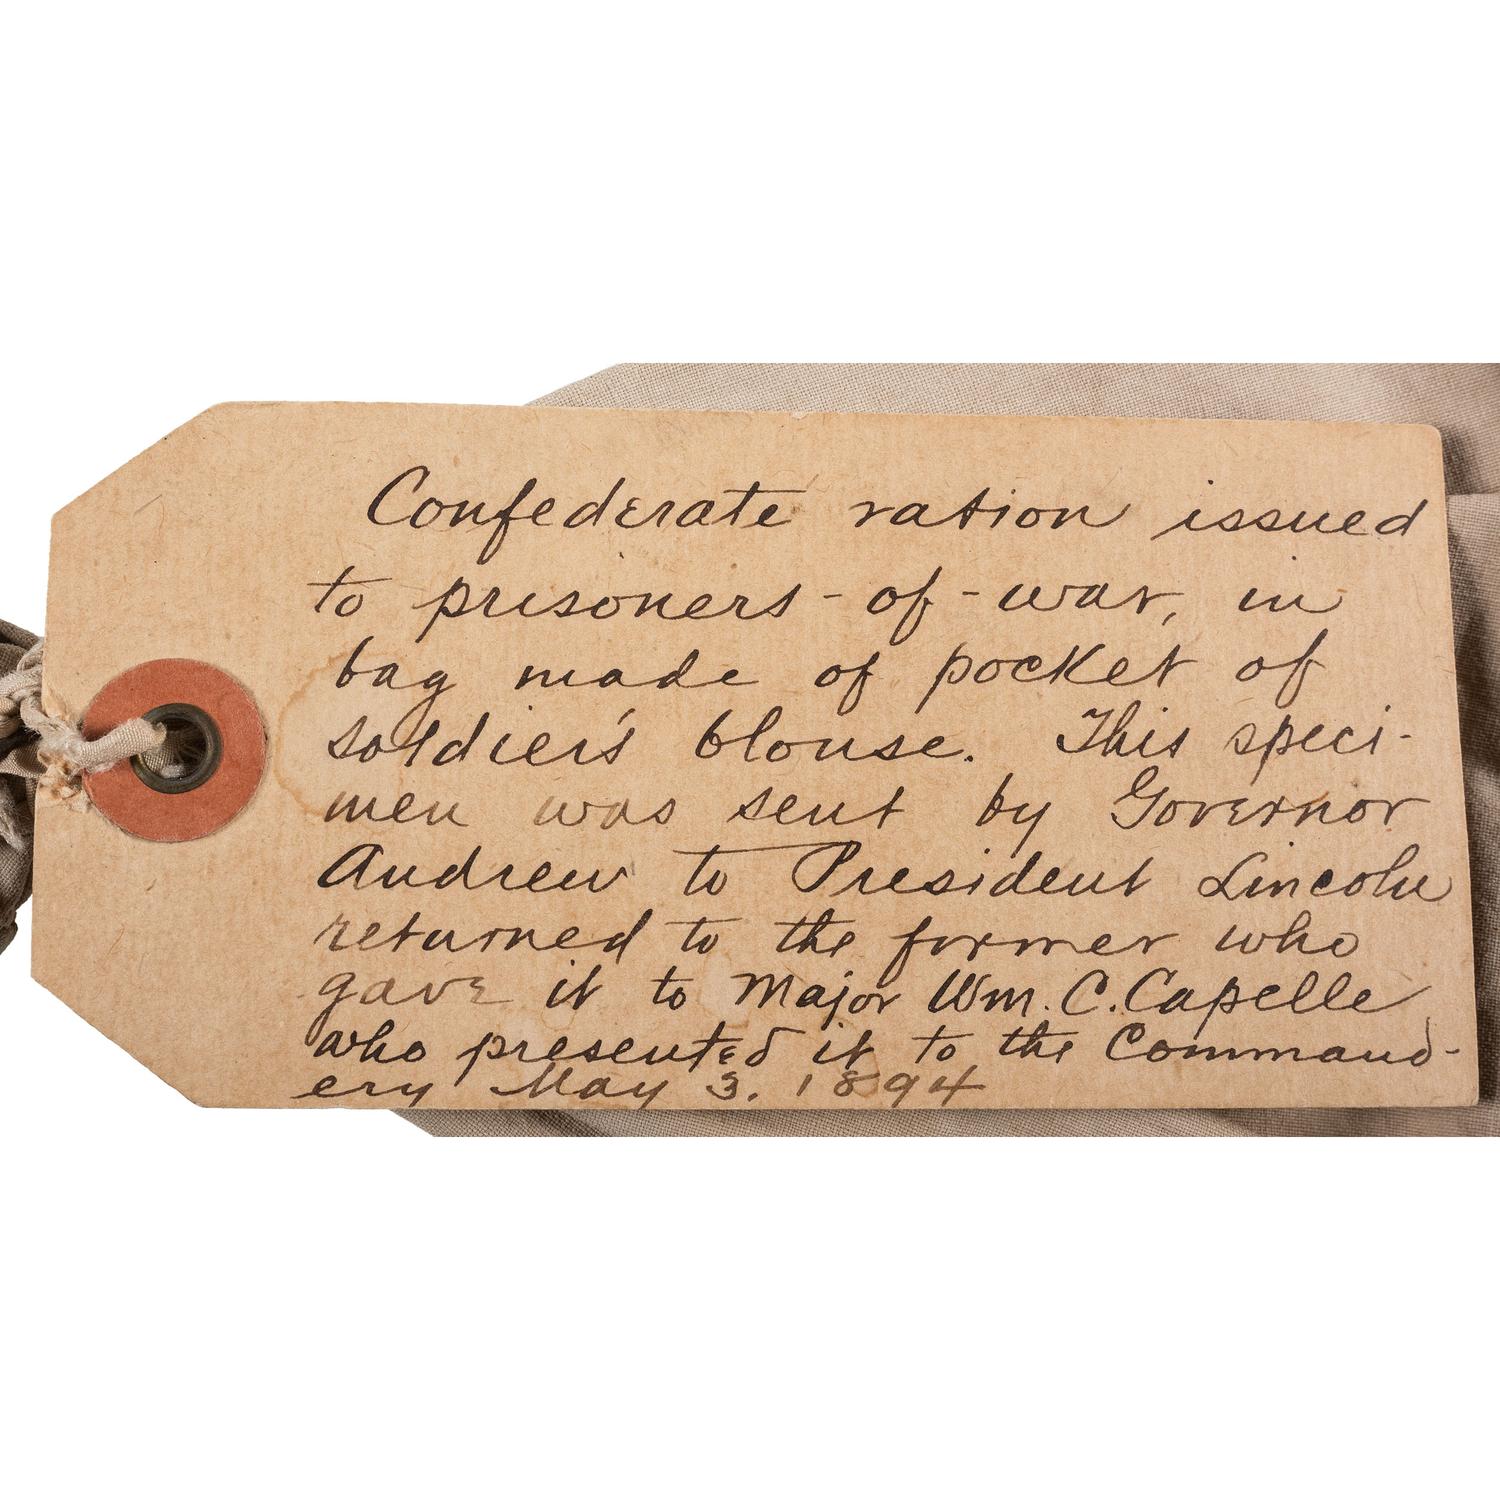 Confederate ration issued
to prisoners-of-war, in
bag made of pocket of
soldier's blouse. This speci-
men was sent by Governor
Andrew to President Lincoln
returned to the former who
gave it to Major Wm. C. Capelle
who presented it to the Command-
ery May 3. 1894